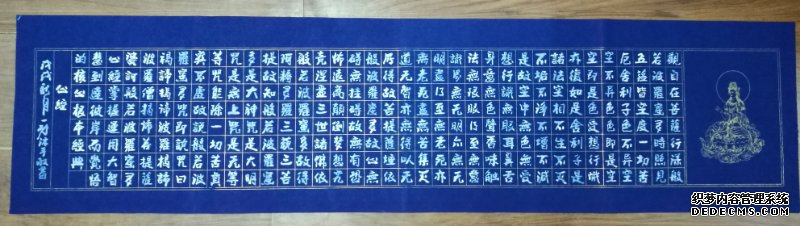 觀自在菩薩行深般
若波羅蜜多時照見
五蘊皆空度一切苦
厄舍利子色不異空
空不異色色即是
空空即是色受想行識
亦復如是舍利子是
諸法空相不生不滅
不垢不淨不增不減
是故空中無色無受
想行識無眼耳鼻舌
身意無色聲香味觸
法無眼界乃至無意
識界無無明亦無無
明盡乃至無老死亦
無老死盡無苦集滅
道無智亦無得以無
所得故菩提薩埵依
般若波羅蜜多故心無
碍無掛碍故無有恐
怖遠離顛倒夢想究
竟涅盤三世諸佛依
般若波羅蜜多故得
阿耨多羅三藐三菩
提故知般若波羅蜜
多是大神咒是大明
咒是無上咒是無等
等咒能除一切苦真
實不虛故說般若波
羅蜜多咒即說咒曰
揭諦揭諦波羅揭諦
波羅僧揭諦菩提薩
婆訶般若波羅蜜多
心經掌握運用大智
慧到達彼岸而覺悟
的核心根本經典
心經
戊戌秋月 敬書
织梦内容管理系统
DEDECMS.COM